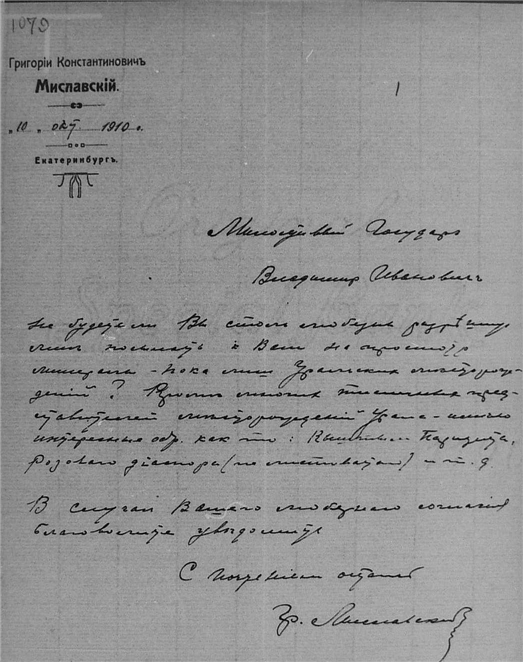 1079
Григорій Константиновичъ
Миславскій.
1
„10„ окт 1910 г.
Екатеринбургъ.
Милостивый Государь
Владимир Ивановичъ
не будете ли Вы столь любезны разрѣшить
мнѣ посылать к Вам на просмотр
минералы - пока лишь Уральских месторож-
дений? Кроме многих типичных пред-
ставителей месторождений Урала - имею
интересные обр. как то: Кыштым Паризита,
розоваго диаспора (не листоватаго) и т. д.
В случаи Вашего любезнаго согласия
благоволите увѣдомить
С почтением остаюсь
Гр. Миславский